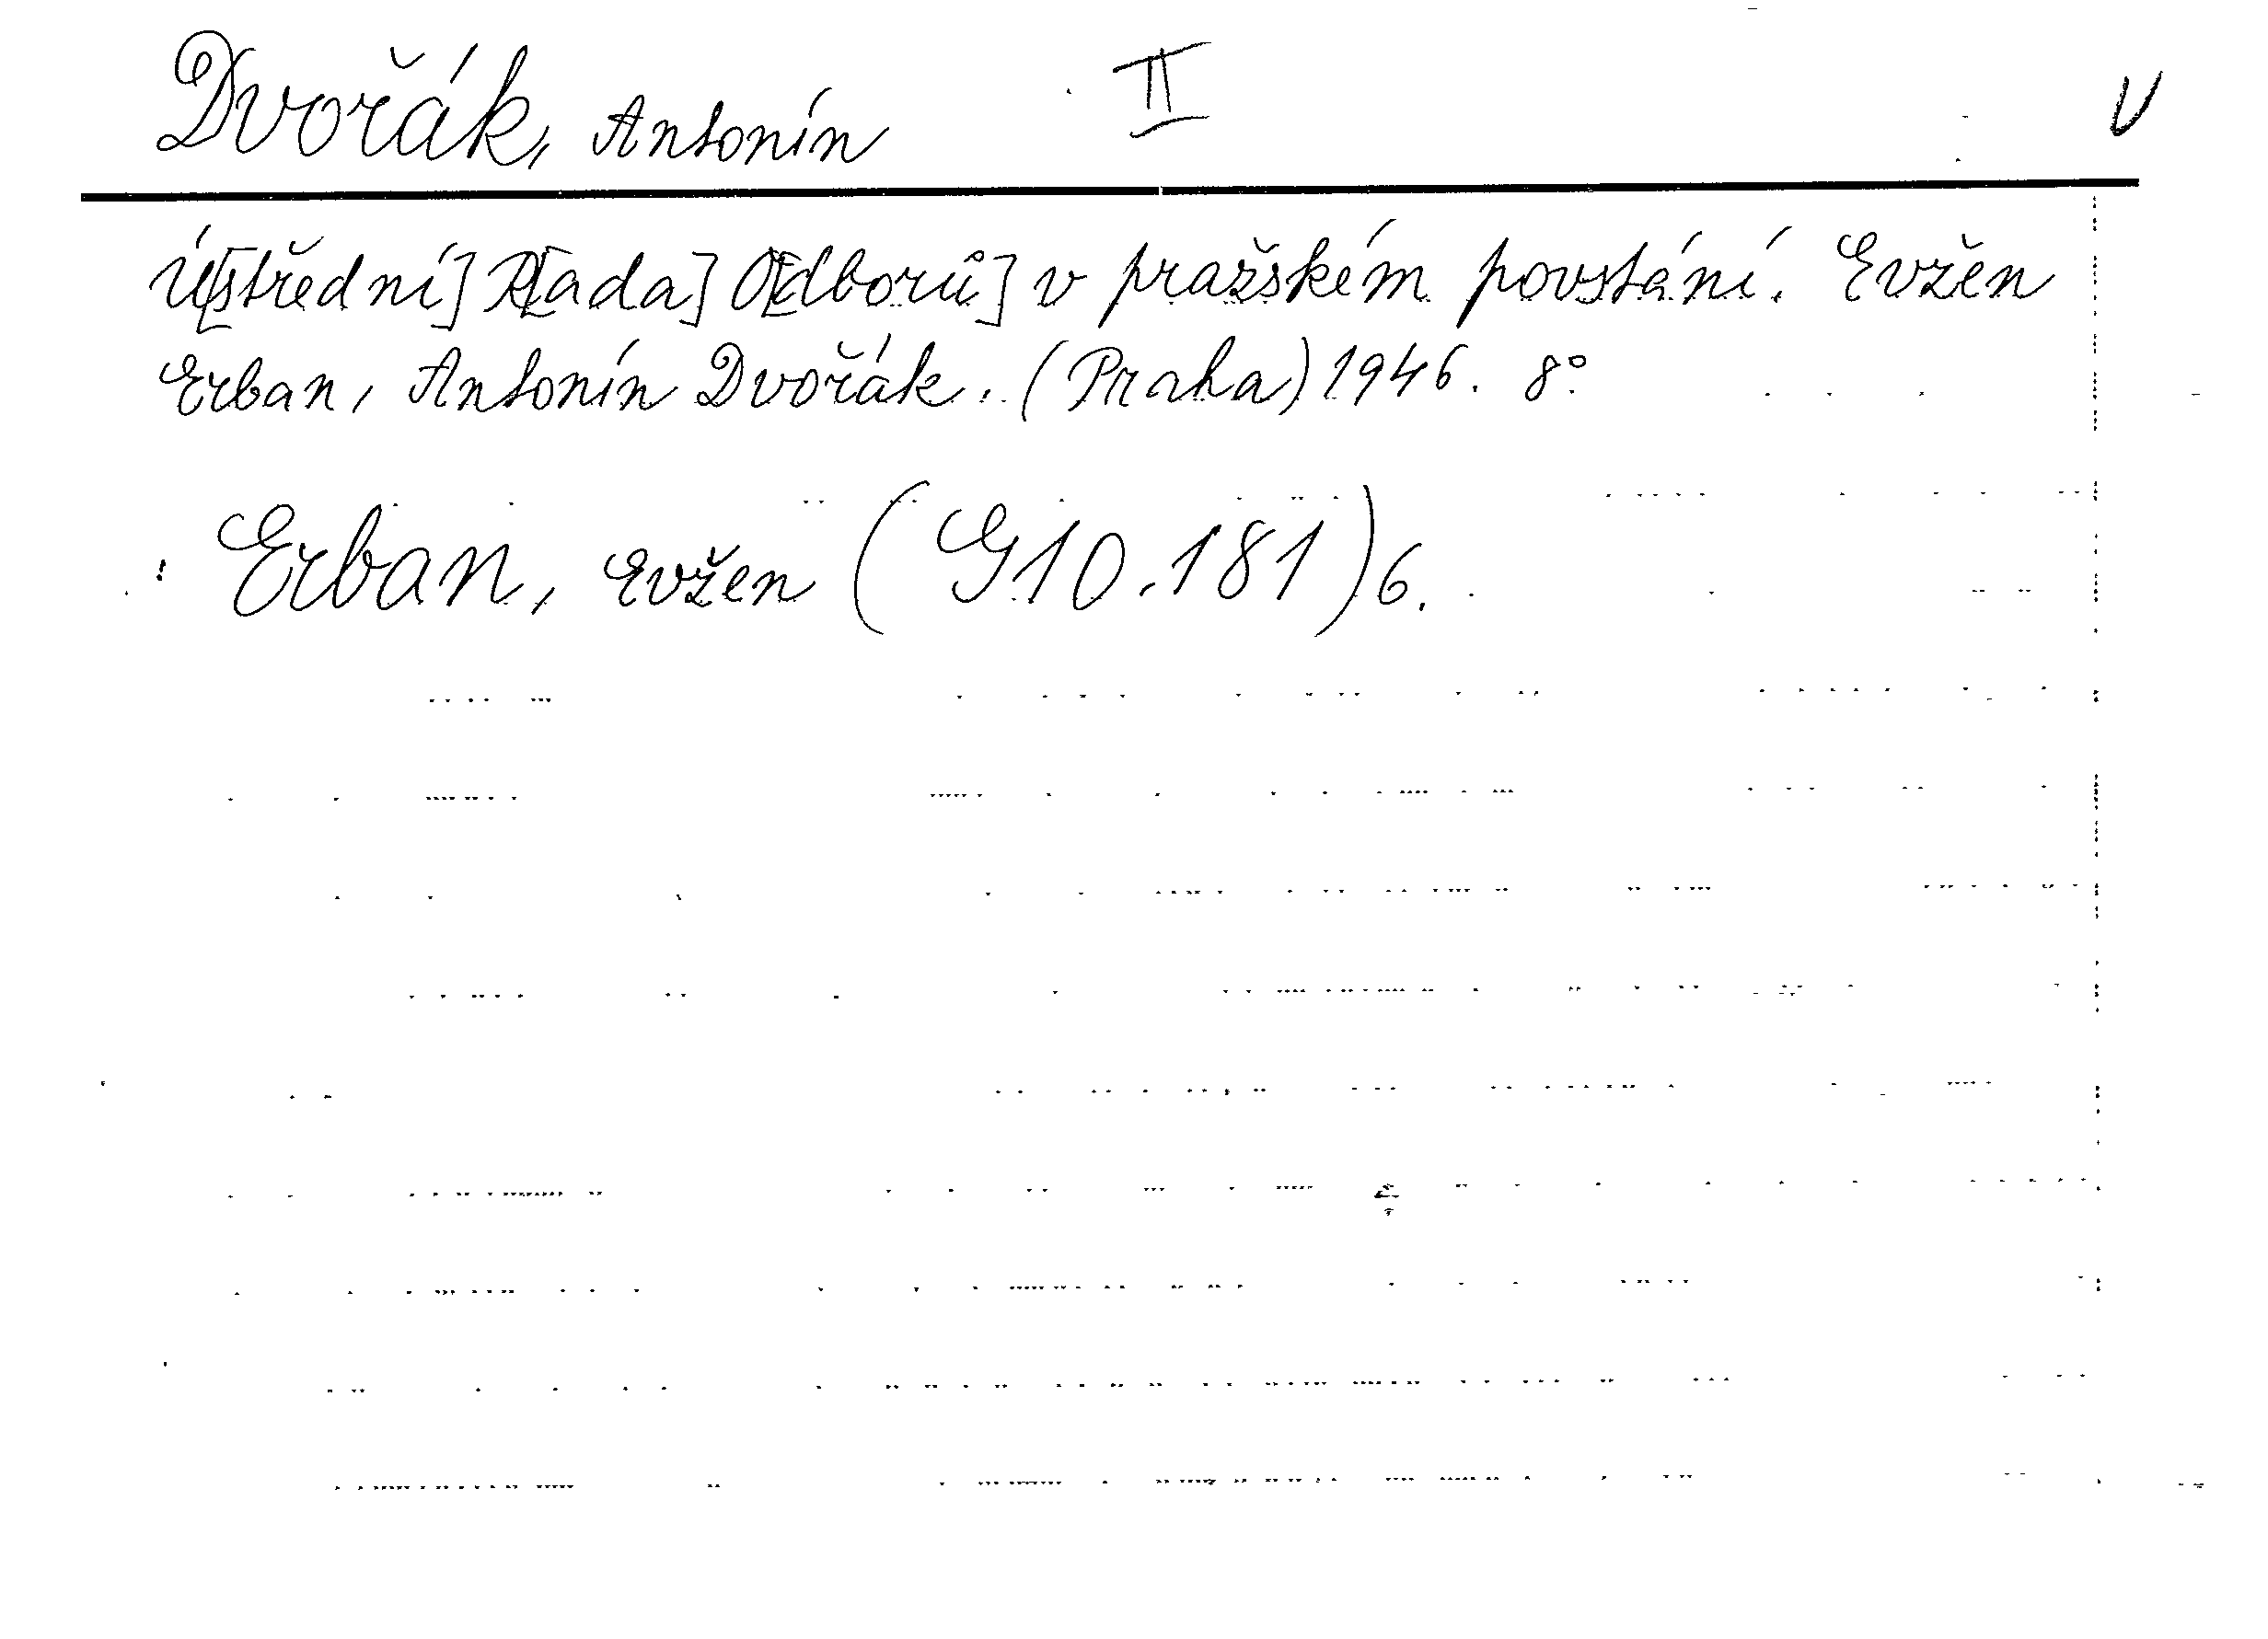 Dvořák, Antonín II V
Ú[střední] R[ada] O[dborů] v pražském povstání. Evžen
Erban, Antonín Dvořák. (Praha) 1946. 8°.
Erban, Evžen (G10.181)6.